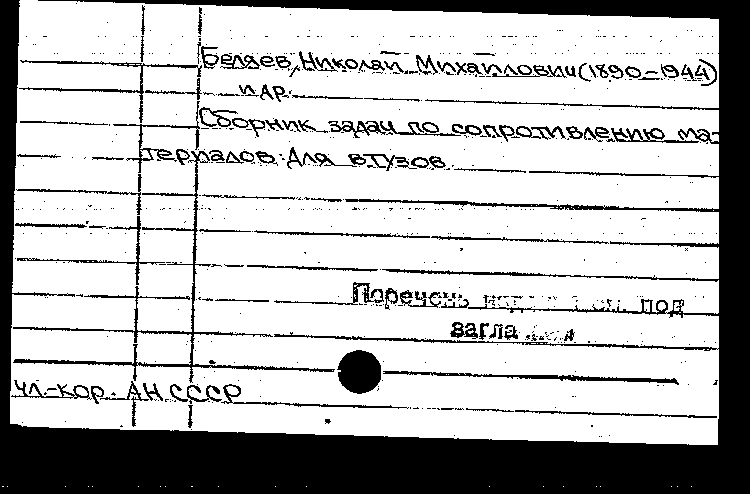 Беляев, Николай Михайлович (1890-1944)
и др.
Сборник задач по сопротивлению ма-
териалов: Для втузов.
Перечень под
загла
чл.-кор. АН СССР